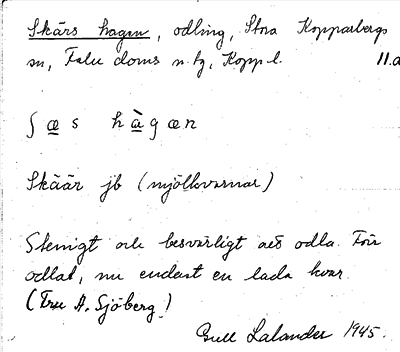 Skärs hagen, odling, Stora Kopparbergs
sn, Falu doms n. tg, Kopp. l. 11.a
ʃ æ s h à g æ n
Skäär jb (mjölkvarnar)
Stenigt och besvärligt att odla. Förr
odlat, nu endast en lada kvar.
(Fru A. Sjöberg.)
Gull Lalander 1945.